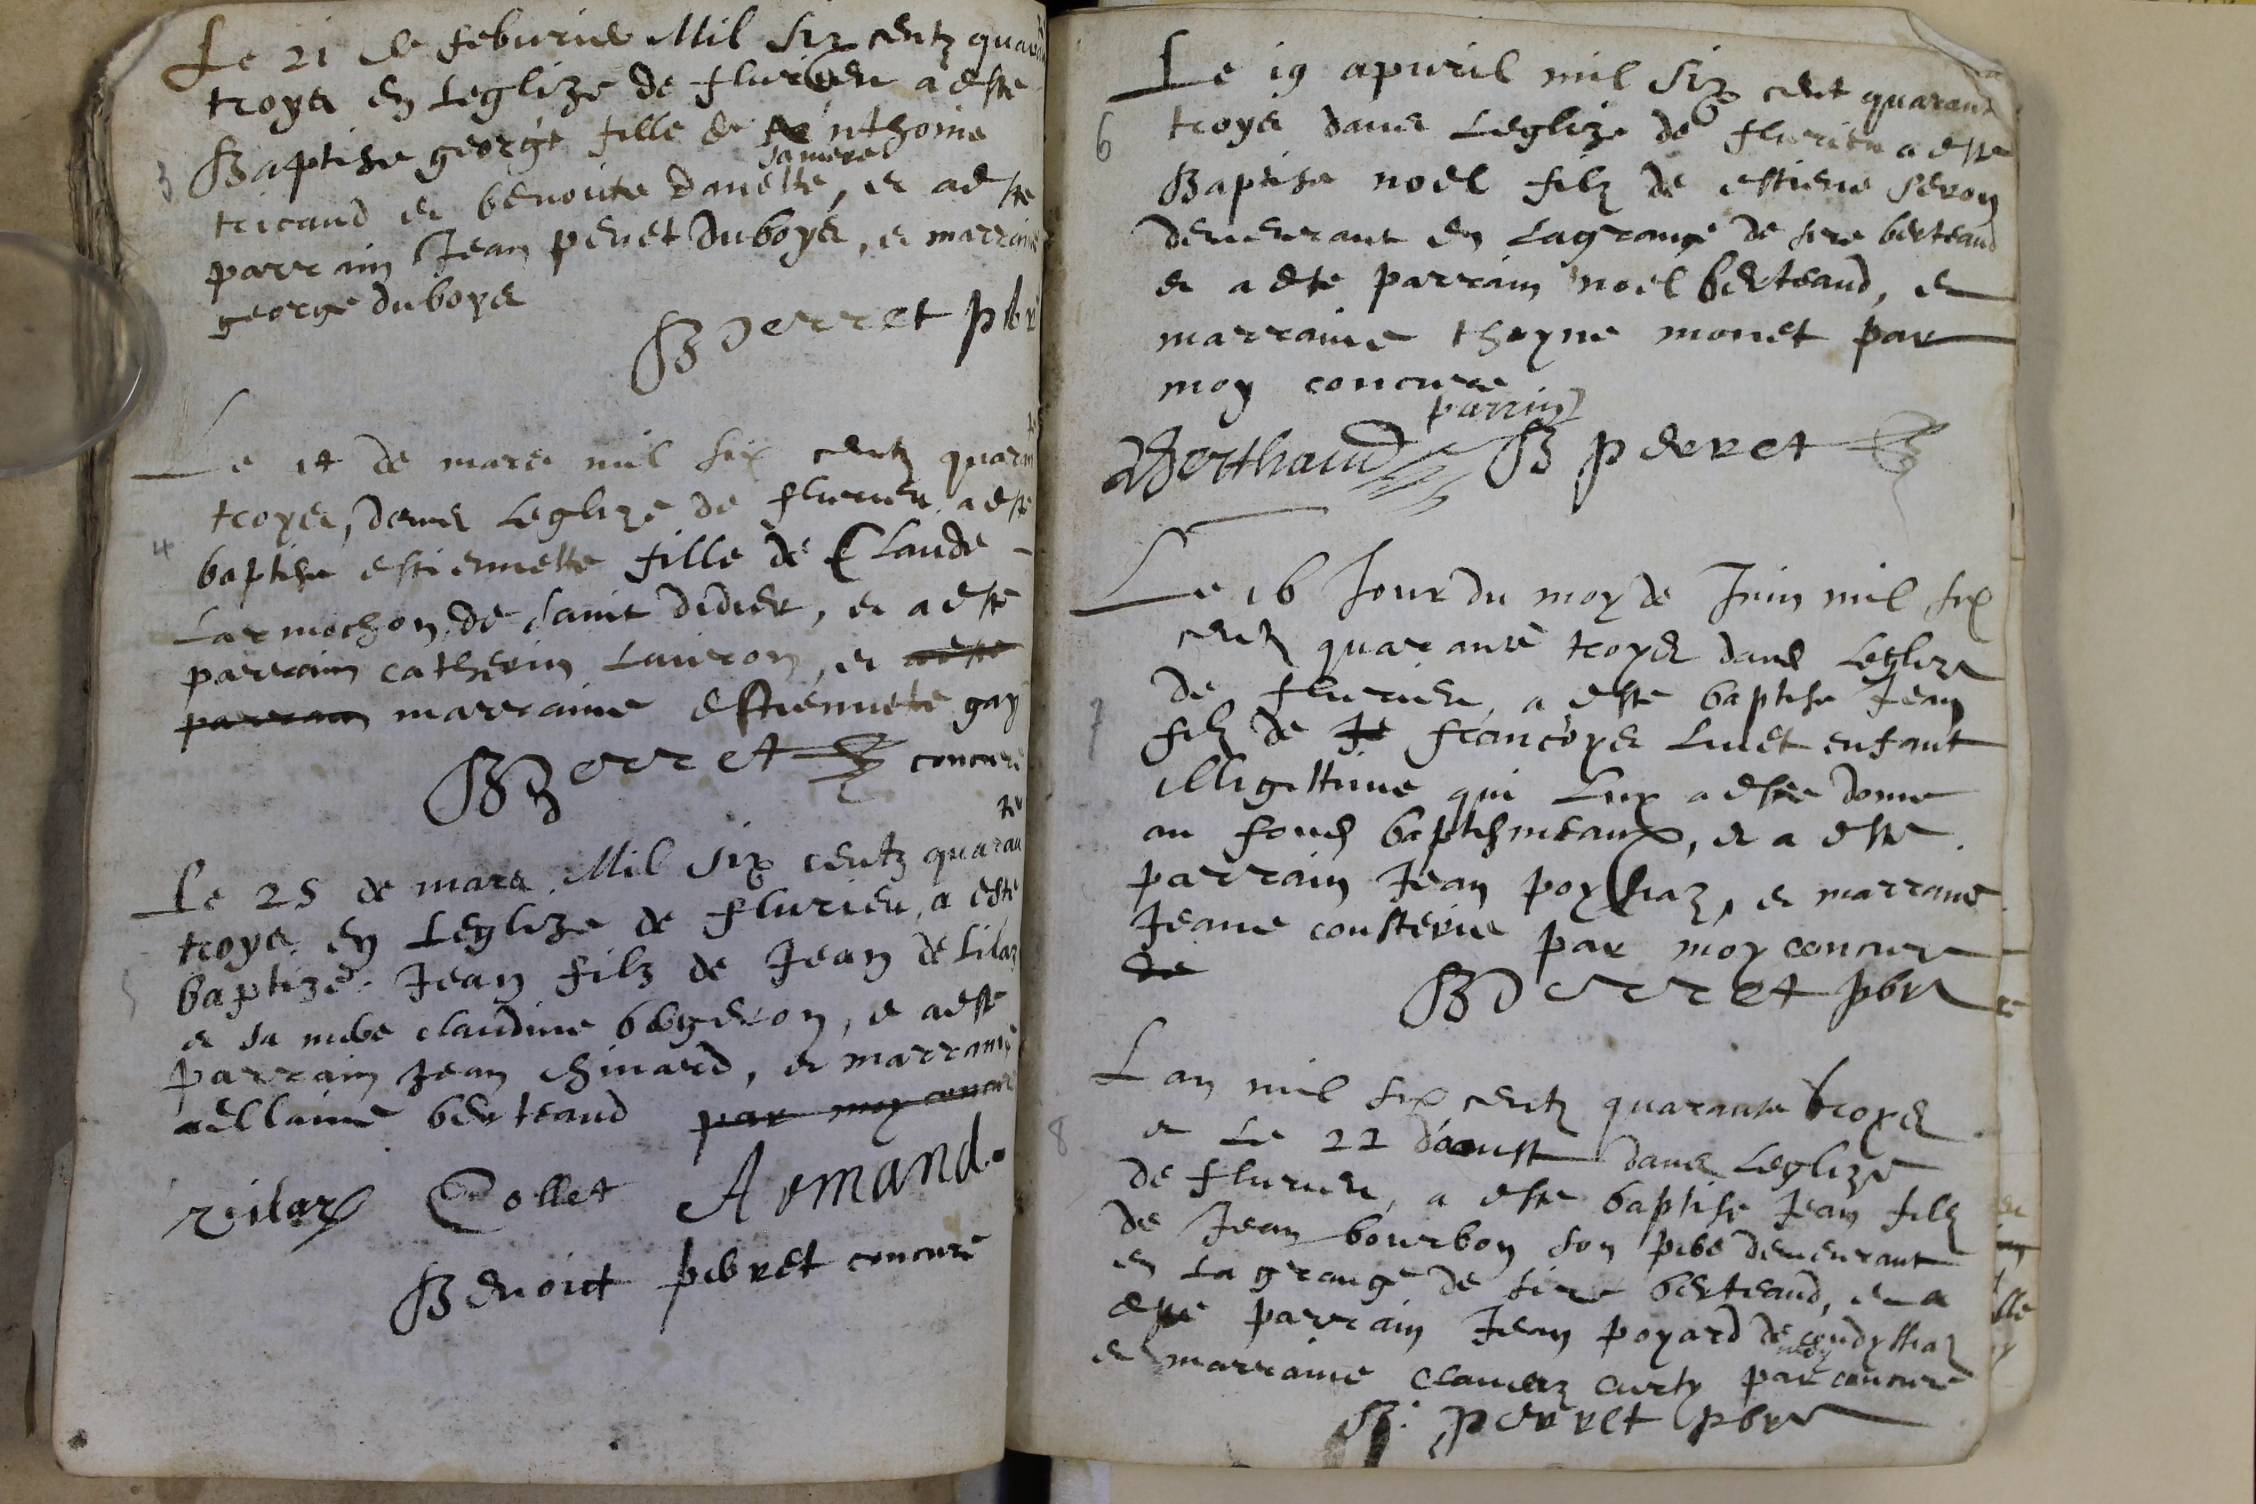 Le 21 de feburier Mil six centz quaran
troys en Leglize de flurieu a este
3
Baptise george fille de Anthoine
sa mere
tricaud et benoite danette, et a este
parrain Jean peret duboys, et marraine
george duboys
B perret pbr
Le 14 de mars mil six centz quaran
troyes, dans Leglize de flurieu a este
4
baptise estiennette fille de Claude
Larmochon de saint didier, et a este
parrain catherin Lauron, et a este
parrain marraine Estiennette gay
B perret concure
Le 25 de mars Mil six centz quaran
troys en Leglize de flurieu, a este
5
baptizé Jean filz de Jean de Lilaz
et sa mere claudine bergeron, et a este
parrain Jean chinard, et marraine
ellaine berteaud par moy concure
Vilars Collet Armand.
Benoict perret concure
Le 19 apvril mil six cent quarant
6
troys dans Leglize de flurieu a este
Baptise noel filz de estiene seron
demeurant en Lagrange de sire berteaud
et a este parrain noel berteaud, et
marraine thoyne monet par
moy concure
parrin
Berthaud B perret
Le 16 Jour du moy de Juin mil six
centz quarante troys dans Leglize
de flurieu, a este baptise Jean
7
filz de Je françoyes Luiet enfant
illigittime qui Luy a este donne
au fonds baptismeaux, et a este
parrain Jean poythaz, et marraine
Jeane cousterie par moy concure
de
B perret pbr
Lan mil six centz quarante troyes
8
et Le 22 d'aoust dans Leglize
de flurieu, a este baptise Jean filz
de Jean bourbon son pere demeurant
en La grange de sire berteaud, et a
este parrain Jean poyard de condythaz
moy
et marraine Clauda Curty par concure
B. perret pbr